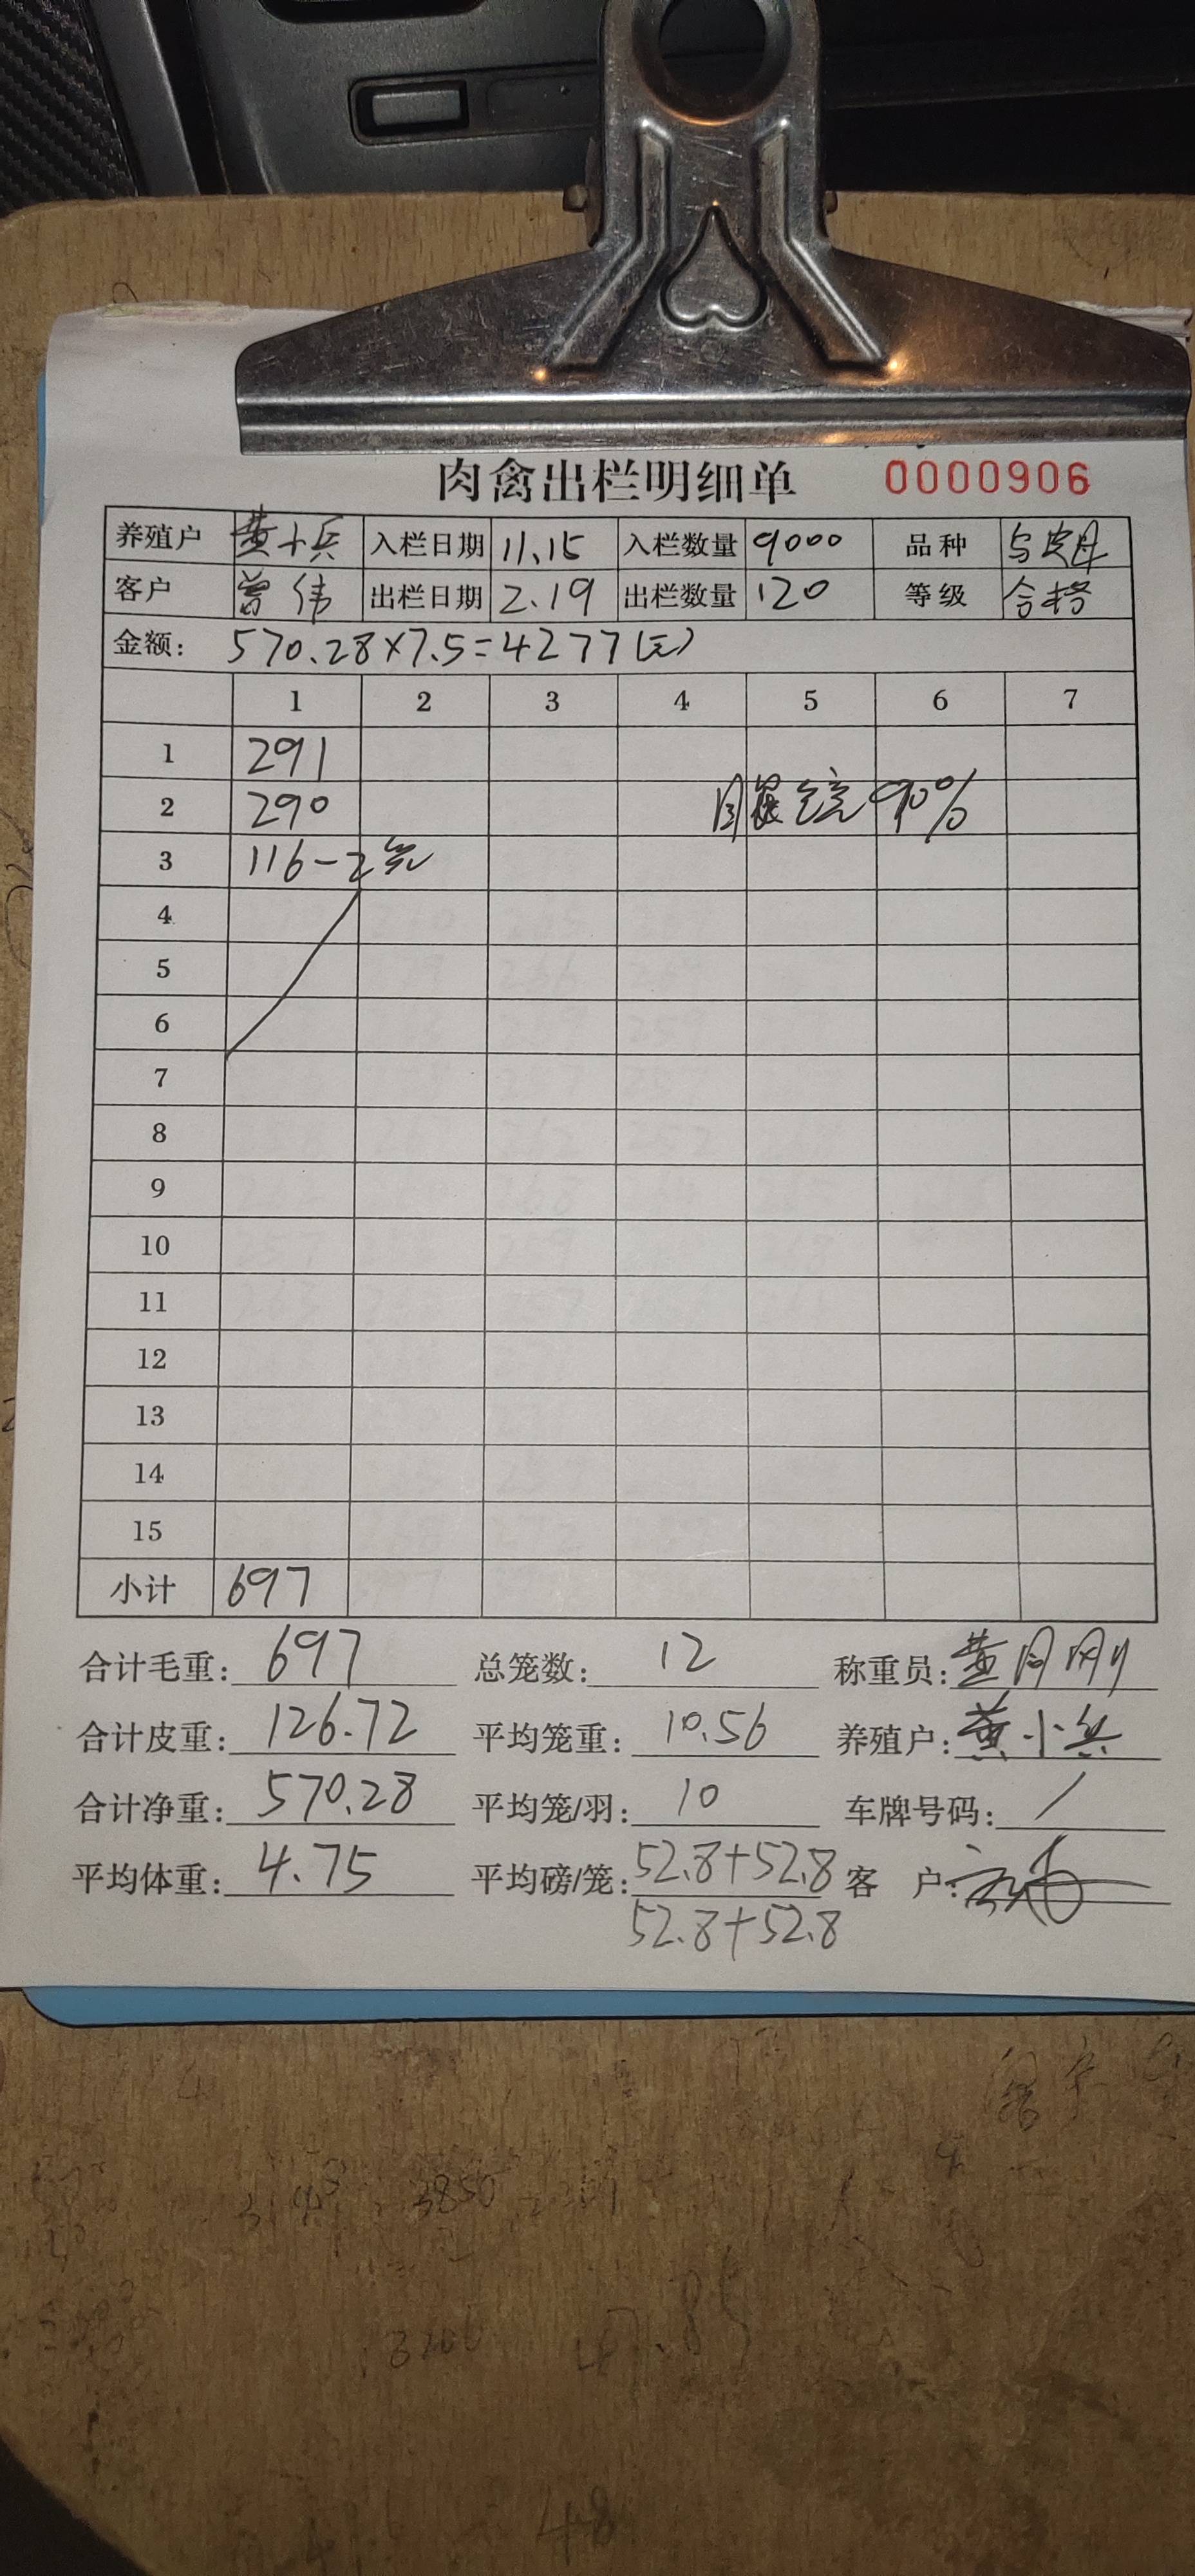 肉禽出栏明细单 0000906
养殖户 黄小兵 入栏日期 11.15 入栏数量 9000 品种
客户 曾伟 出栏日期 2.19 出栏数量 120 等级 合格
金额: 570.28×7.5=4277(元)
1 2 3 4 5 6 7
1 291
2 290 90%
3 116-2笼
4
5
6
7
8
9
10
11
12
13
14
15
小计 697
合计毛重: 697 总笼数: 12 称重员:
合计皮重: 126.72 平均笼重: 10.56 养殖户: 黄小兵
合计净重: 570.28 平均笼/羽: 10 车牌号码: /
平均体重: 4.75 平均磅/笼: 52.8+52.8 客 户:
52.8+52.8